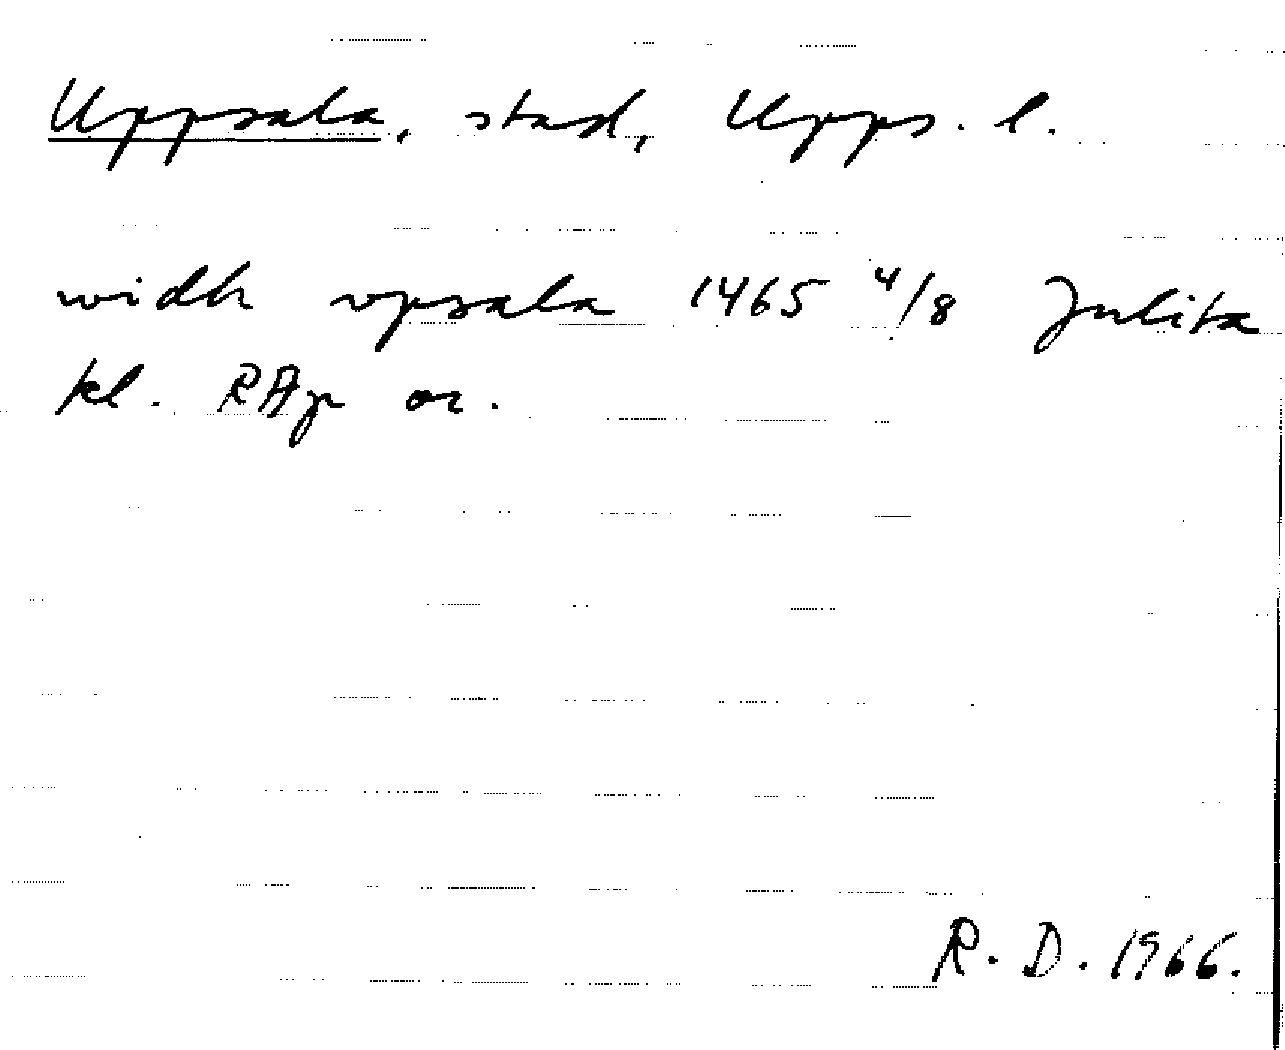 Uppsala, stad, Upps. l.
widh vpsala 1465 4/8 Julita
kl. RAp or.
R. D. 1966.